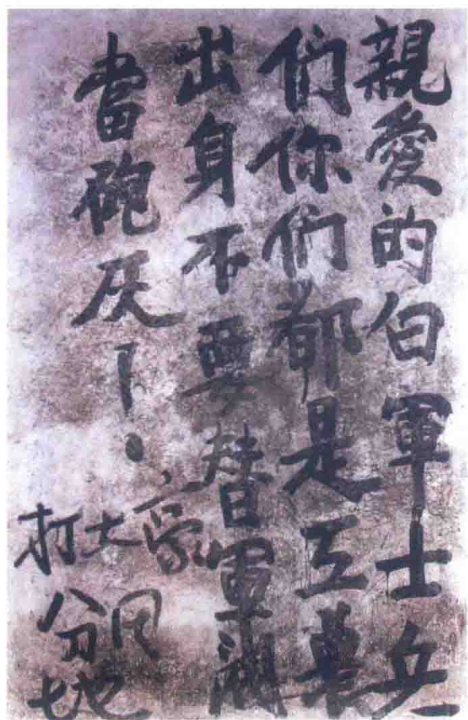 親愛的白軍士兵
们你们都是工農
出身不要替軍閥
當砲灰！
打土豪
分田
地